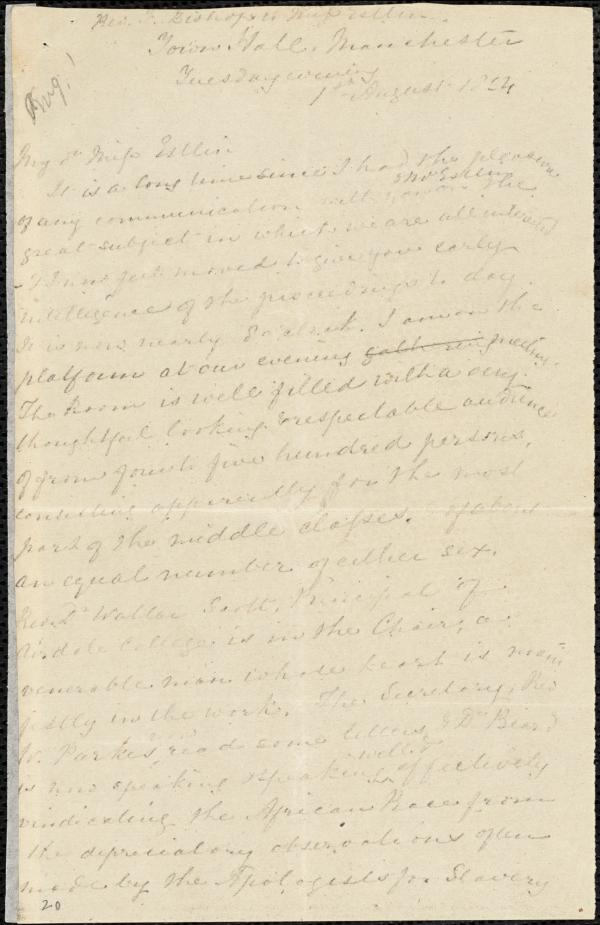 Rev. F. Bishop to Miss Estlin.
Town Hall, Manchester
Tuesday evening
1st August 1854
Aug!
My dr Miss Estlin
It is a long time since I had the pleasure
& Mr Estlin
of any communication with you on the
great subject in which we are all interested
- I now feel moved to give you early
intelligence of the proceedings to day.
It is now nearly 8 o'clock. I am on the
platform at our evening gathering meeting.
The Room is well filled with a very
thoughtful looking & respectable audience
of from four to five hundred persons,
consisting apparently for the most
part of the middle classes, & of about
an equal number of either sex.
Revd Dr Wallar Scott, Principal of
Airdale College is in the Chair, a
venerable man whose heart is mani
festly in the work. The Secretary, Rev
W. Parkes, read some letters, & Dr Beard
is now speaking & speaking well & effectively
vindicating the African Race from
the depreciatory observations often
made by the Apologists for Slavery
20